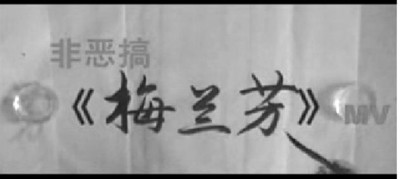 非恶搞
《梅兰芳》MV